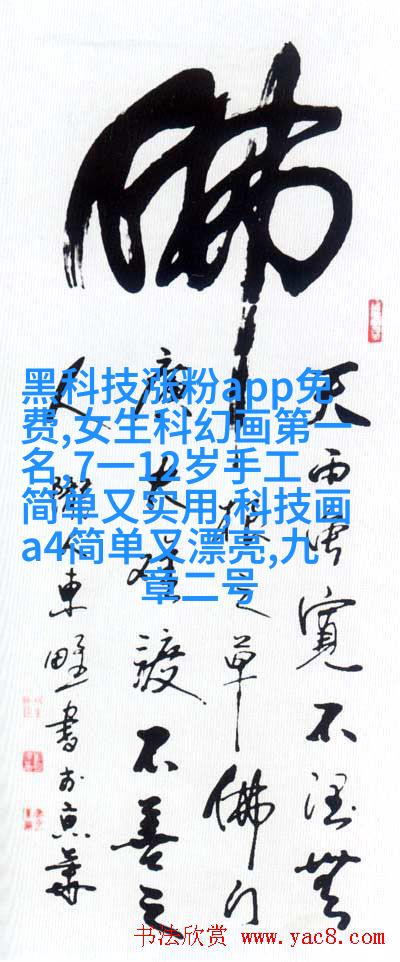 佛
天雨雖寬不潤無
根之草佛门
廣大難渡不善之
人 東野書於京華
黑科技涨粉app免
费,女生科幻画第一
名,7一12岁手工
简单又实用,科技画
a4简单又漂亮,九
章二号
书法欣赏 www.yac8.com